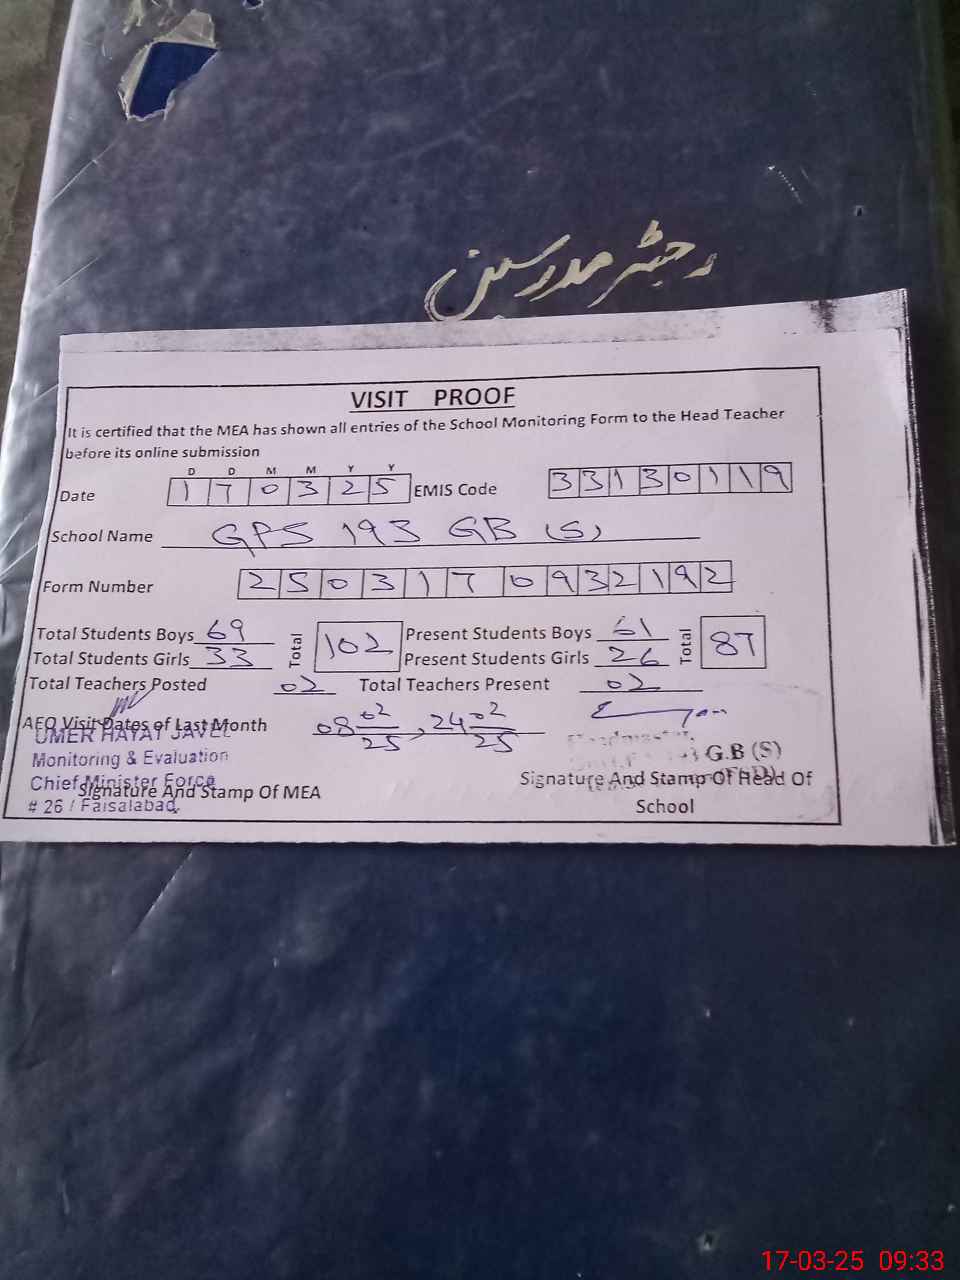 رجسٹر مدرسین
VISIT PROOF
It is certified that the MEA has shown all entries of the School Monitoring Form to the Head Teacher
before its online submission
D D M M Y Y
Date 1 7 0 3 2 5 EMIS Code 3 3 1 3 0 1 1 9
School Name GPS 193 GB (S)
Form Number 2 5 0 3 1 7 0 9 3 2 1 9 2
Total Students Boys 69 Total 102 Present Students Boys 61 Total 87
Total Students Girls 33 Present Students Girls 26
Total Teachers Posted 02 Total Teachers Present 02
AEO Visit Dates of Last Month 08 02/25, 24 02/25
UMER HAYAT
Monitoring & Evaluation
Chief Minister Force
# 26 / Faisalabad
Signature And Stamp Of MEA
Headmaster
G.B (S)
Signature And Stamp Of Head Of
School
17-03-25 09:33